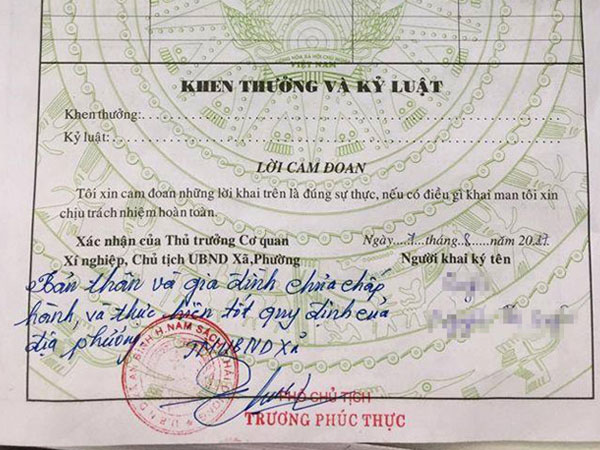 VIỆT NAM
KHEN THƯỞNG VÀ KỶ LUẬT
Khen thưởng:
Kỷ luật:
LỜI CAM ĐOAN
Tôi xin cam đoan những lời khai trên là đúng sự thực, nếu có điều gì khai man tôi xin
chịu trách nhiệm hoàn toàn.
Xác nhận của Thủ trưởng Cơ quan
Xí nghiệp, Chủ tịch UBND Xã,Phường
Ngày....1...tháng...8....năm 2017
Người khai ký tên
Bản thân và gia đình chưa chấp
hành, và thực hiện tốt quy định của
địa phương
TM UBND Xã
U.B.N.D X. AN BÌNH H. NAM SÁCH T. HẢI DƯƠNG
PHÓ CHỦ TỊCH
TRƯƠNG PHÚC THỰC